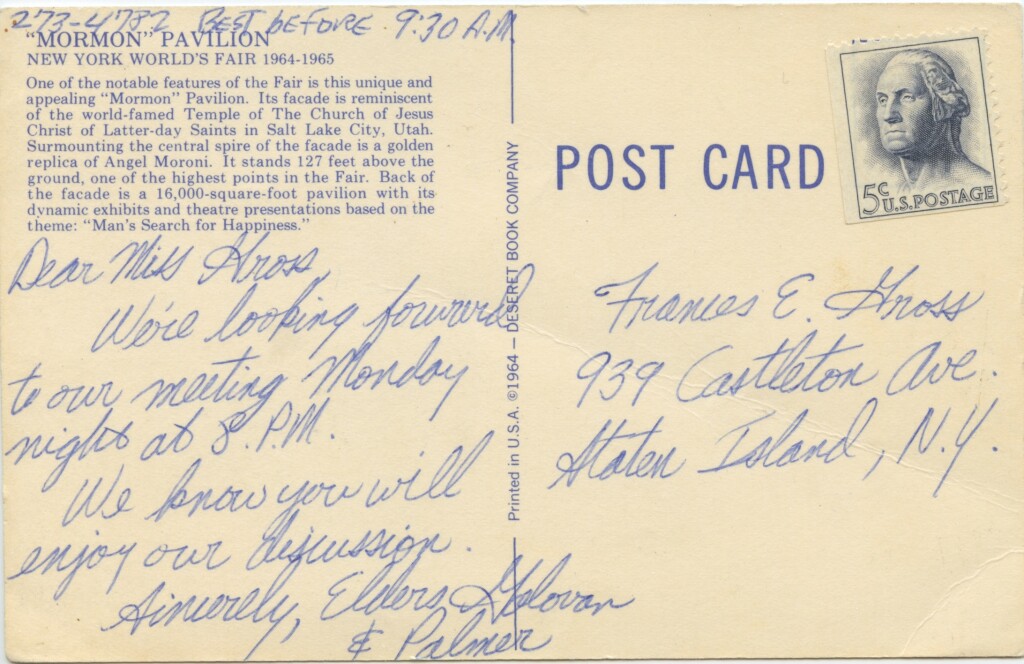 273-4782 Best before 9:30 A.M.
"MORMON" PAVILION
NEW YORK WORLD'S FAIR 1964-1965
One of the notable features of the Fair is this unique and
appealing "Mormon" Pavilion. Its facade is reminiscent
of the world-famed Temple of The Church of Jesus
Christ of Latter-day Saints in Salt Lake City, Utah.
Surmounting the central spire of the facade is a golden
replica of Angel Moroni. It stands 127 feet above the
ground, one of the highest points in the Fair. Back of
the facade is a 16,000-square-foot pavilion with its
dynamic exhibits and theatre presentations based on the
theme: "Man's Search for Happiness."
Dear Miss Gross,
We're looking forward
to our meeting Monday
night at 8 P.M.
We know you will
enjoy our discussion.
Sincerely, Elders
& Palmer
Printed in U.S.A. ©1964 — DESERET BOOK COMPANY
POST CARD
5c U.S. POSTAGE
Frances E. Gross
939 Castleton Ave.
Staten Island, N.Y.